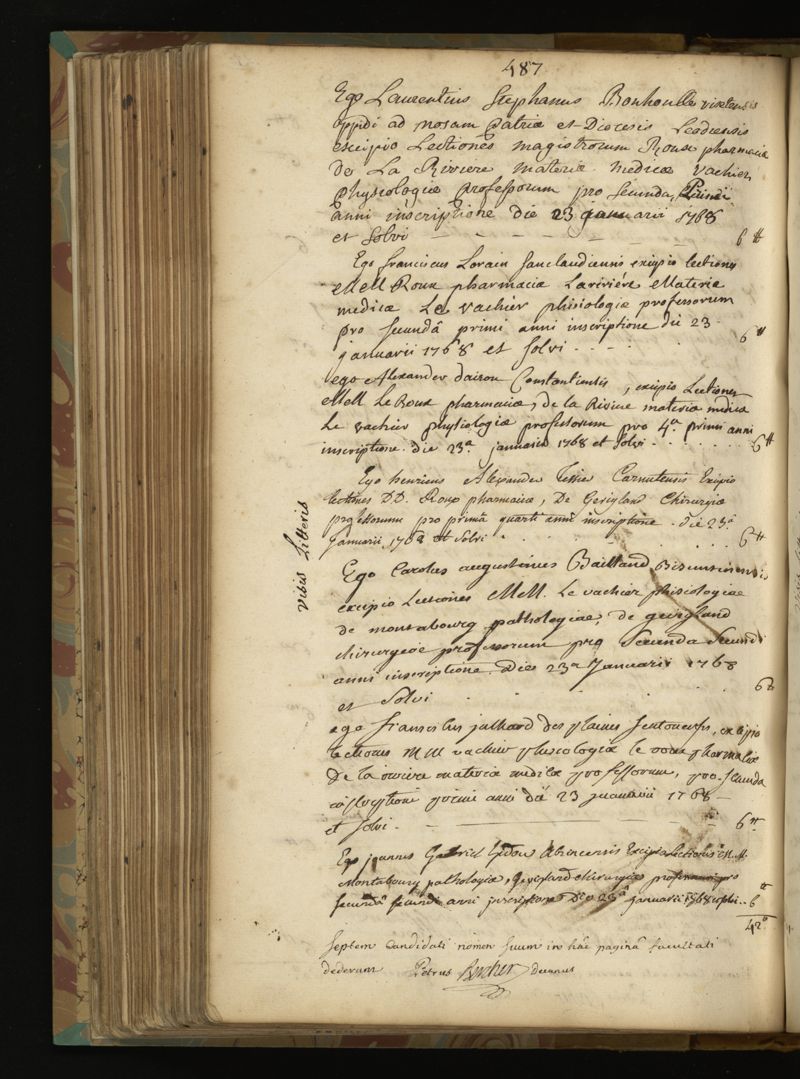 487
Ego Laurentius Stephanus Bonhoulle visetensis
oppidi ad mosam Patriæ et Diocesis Leodiensis
excipio Lectiones magistrorum Roux pharmaciæ
De La Riviere materiæ medicæ vachier
physiologiæ professorum pro secunda primi
anni inscriptione die 23 januarii 1768
et solvi 6 ₶
Ego franciscus Lorain sanclaudiensis excipio lectiones
MM Roux pharmaciæ Lariviére Materiæ
medicæ Le vachier phisiologiæ professorum
pro secundâ primi anni inscriptione die 23
januarii 1768 et solvi 6 ₶
ego Alexander dairou Constantiensis, excipio Lectiones
MM Le Roux pharmaciæ, de la Riviere materiæ medica
Le vachier physiologiæ professorum pro 4.a primi anni
inscriptione die 23.a januarii 1768 et solvi 6 ₶
Ego henricus Alexander Tessier Carnutensis Excipio
lectiones DD. Roux pharmaciæ, De Gevigland Chirurgiæ
professorum pro primâ quarti anni inscriptione die 23.a
januarii 1768 et solvi 6 ₶
visis Litteris
Ego Carolus augustinus Bailland Bisuntinensis
excipio Lectiones MM. Le vachier phisiologiae
de montabourg pathologiae, de gevigland
chirurgeæ professorum pro Secunda Secundi
anni inscriptione. Dies 23a Januarii 1768
et Solvi 6 ₶
ego julhard des plaines, excipio
lectiones MM vachier phisiologiæ le roux pharmaciæ
De la riviere materiæ medicæ professorum, pro secunda
inscriptione primi anni die 23 januarii 1768
et solvi 6 ₶
Ego joannes Gabriel Abrincensis Excipio Lectiones MM.
Montabourg pathologiæ, Gevigland chirurgiæ professorum pro
secundâ secundi anni inscriptione die 23a januarii 1768 solvi 6 ₶
42 ₶
Septem Candidati nomen suum in hâc paginâ facultati
dederunt Petrus Bercher decanus